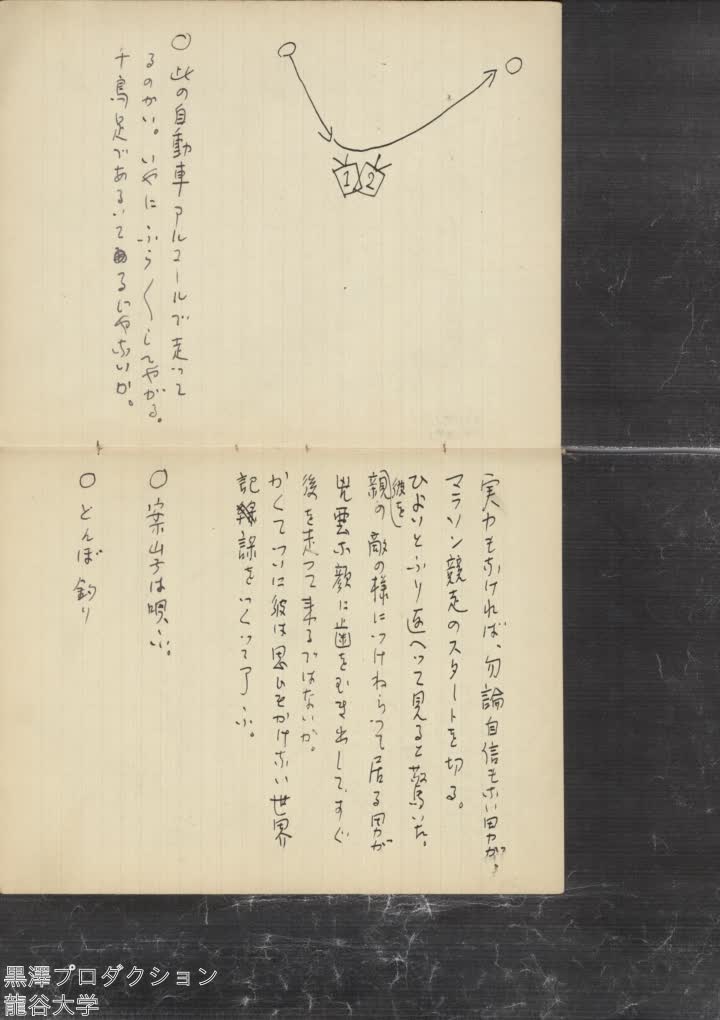 1 2
○ 此の自動車アルコールで走って
るのかい。いやにふら〱してやがる。
千鳥足であるいてるじやないか。
実力もなければ、勿論自信もない男が、
マラソン競走のスタートを切る。
ひよいとふり返へって見ると驚いた。
彼を
親の敵の様につけねらって居る男が
兇悪な顔に歯をむき出して、すぐ
後を走って来るではないか。
かくてついに彼は思ひもかけない世界
記録をつくって了ふ。
○ 案山子は唄ふ。
○ とんぼ釣り
黒澤プロダクション
龍谷大学